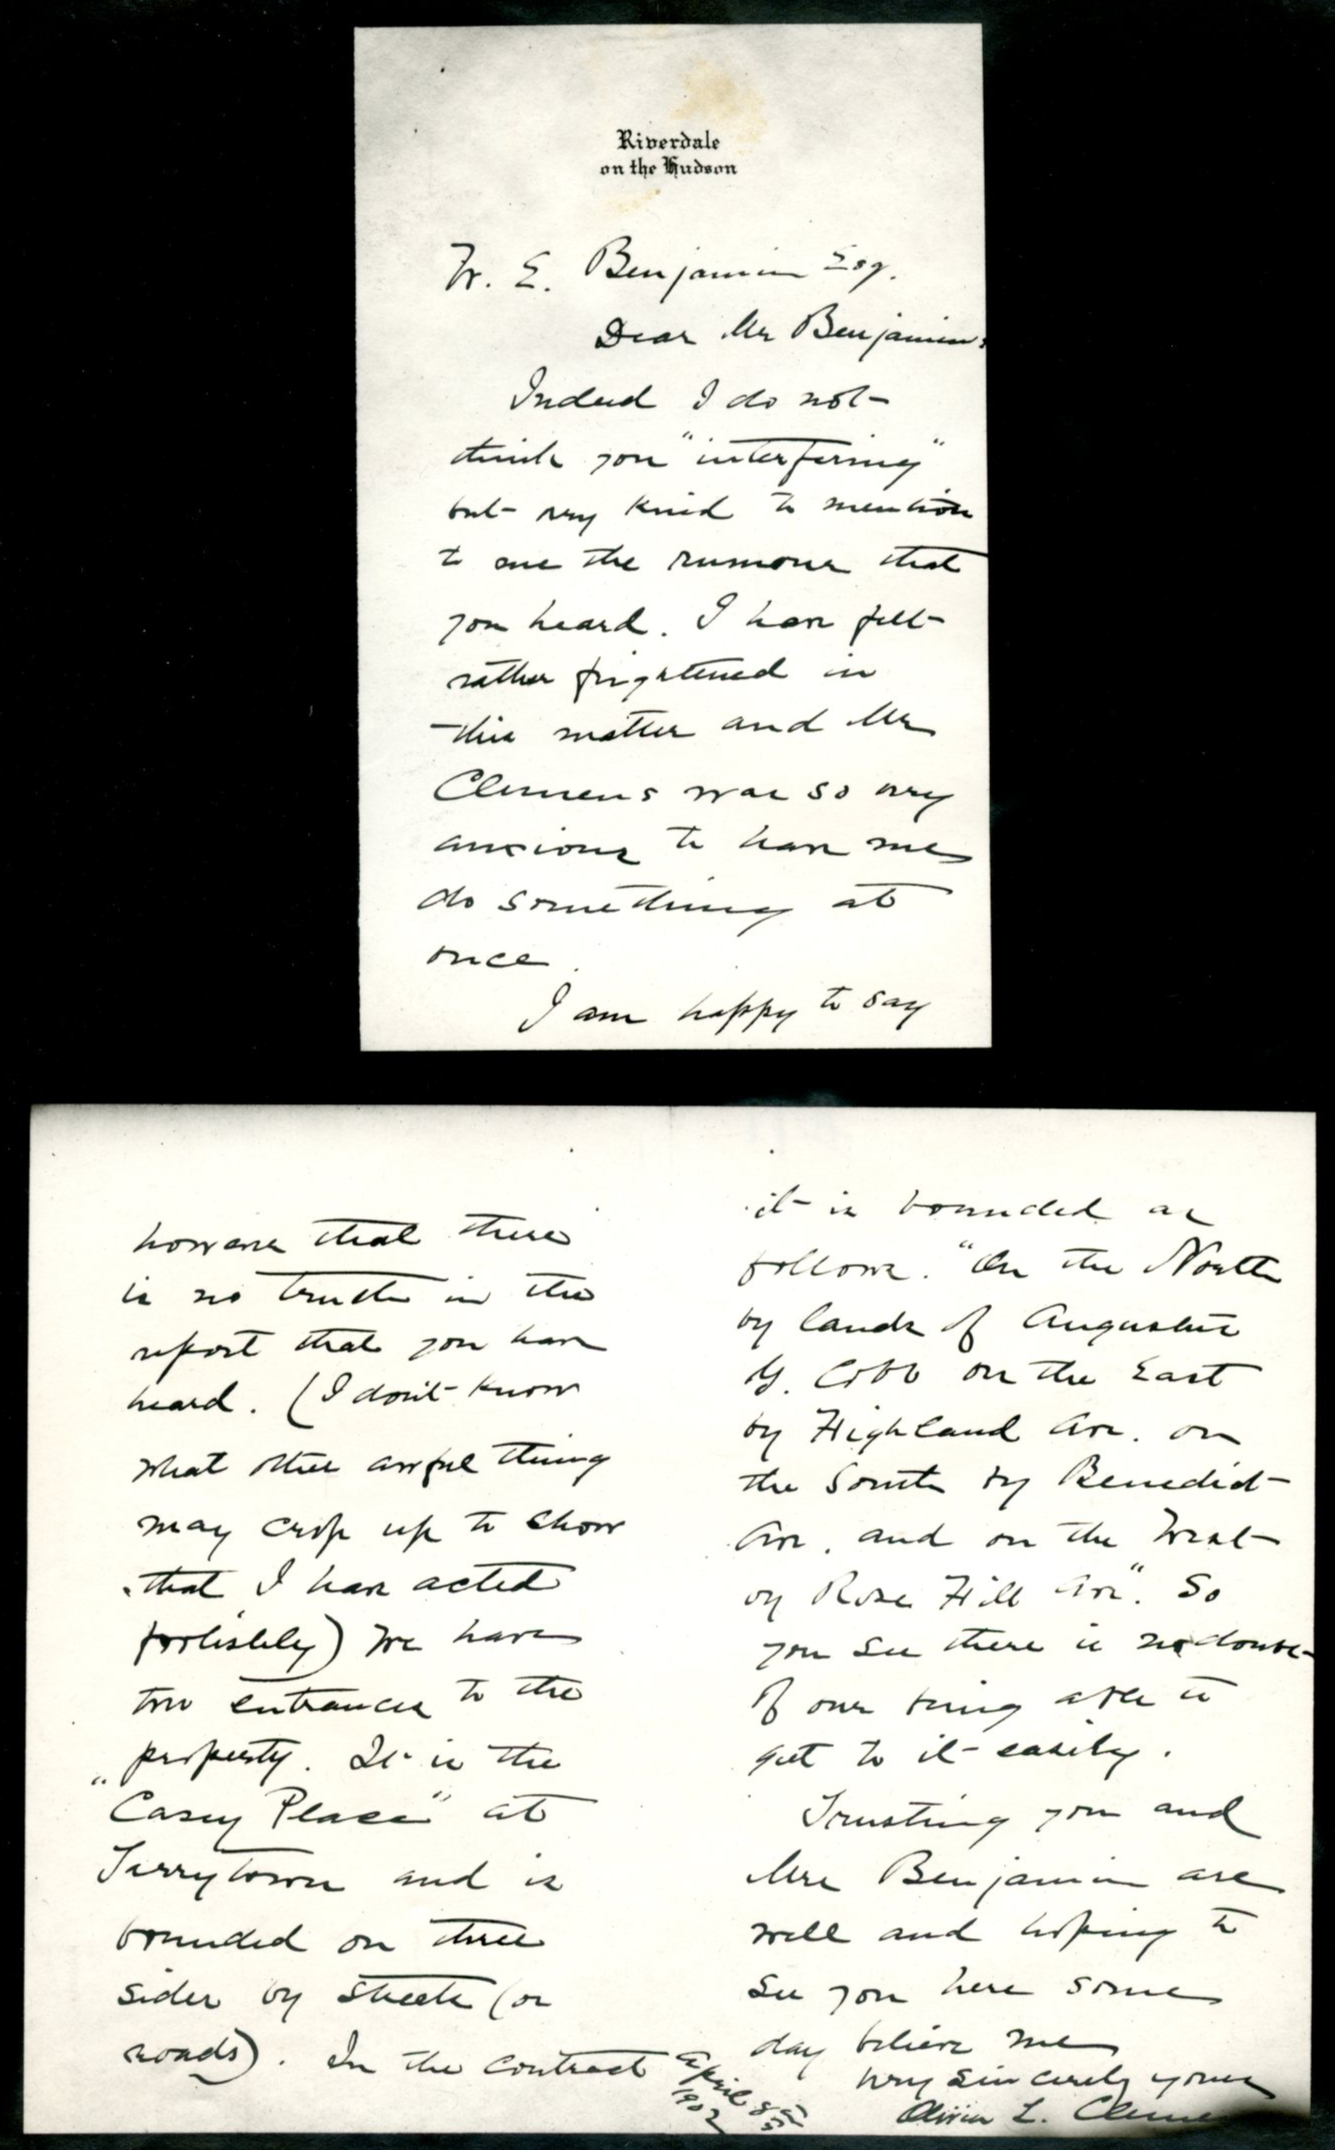 Riverdale
on the Hudson
W. E. Benjamin Esq.
Dear Mr Benjamin:
Indeed I do not
think you "interfering"
but very kind to mention
to me the rumour that
you heard. I have felt
rather frightened in
this matter and Mr
Clemens was so very
anxious to have me
do something at
once.
I am happy to say
however that there
is no truth in the
report that you have
heard. (I don't know
what other awful thing
may crop up to show
that I have acted
foolishly) We have
two entrances to the
property. It is the
"Casey Place" at
Tarrytown and is
bounded on three
sides by streets (or
roads). In the contract
it is bounded as
follows. "On the North
by lands of Augustus
G. Cobb on the East
by Highland Ave. on
the South by Benedict
Ave. and on the West
by Rose Hill Ave". So
you see there is no doubt
of our being able to
get to it easily.
Trusting you and
Mrs Benjamin are
well and hoping to
see you here some
day believe me
very sincerely yours
Olivia L. Cleme
April 8th
1902